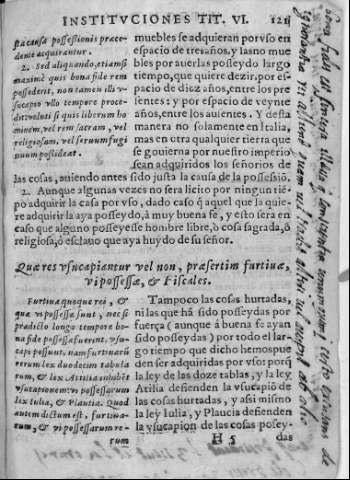 INSTITVCIONES TIT. VI. 121
sta causa possessionis prace-
dente acquirantur.
2. Sed aliquando, etiamsi
maximè quis bona fide rem
possederit, non tamen illi v-
sucapio vllo tempore proce-
dit: veluti si quis liberum ho
minem, vel rem sacram, vel
religiosam, vel seruum fugi
tiuum possideat.
muebles se adquieran por vso en
espacio de tres años, y las no mue
bles por auerlas posseydo largo
tiempo, que quiere dezir, por es-
pacio de diez años, entre los pre
sentes: y por espacio de veynte
años, entre los ausentes. Y desta
manera no solamente en Italia,
mas en otra qualquier tierra que
se gouierna por nuestro imperio
sean adquiridos los señorios de
las cosas, auiendo antes sido justa la causa de la possessiō.
2. Aunque algunas vezes no sera licito por ningun tiē-
po adquirir la casa por vso, dado caso q̄ aquel que la quie-
re adquirir la aya posseydo, à muy buena fe, y esto sera en
caso que alguno posseyesse hombre libre, ò cosa sagrada, ò
religiosa, ò esclauo que aya huydo de su señor.
Quæ res vsucapiantur vel non, præsertim furtiuæ,
vi possessæ, & Fiscales.
Furtiuæ quoque res, &
quæ vi possessæ sunt, nec si
prædicto longo tempore bo-
na fide possessæ fuerint. vsu-
capi possunt. nam furtiuarū
rerum lex duodecim tabula
rum, & lex Attilia inhibēt
vsucapionem: vi possessarum
lex Iulia, & Plautia. Quod
autem dictum est, furtiua-
rum, & vi possessarum re-
rum
Tampoco las cosas hurtadas,
ni las que hā sido posseydas por
fuerça (aunque à buena fe ayan
sido posseydas) por todo el lar-
go tiempo que dicho hemos pue
den ser adquiridas por vso: porq̄
la ley de las doze tablas, y la ley
Atilia defienden la vsucapiō de
las cosas hurtadas, y assi mismo
la ley Iulia, y Plaucia defienden
la vsucapion de las cosas posey-
H 5 das